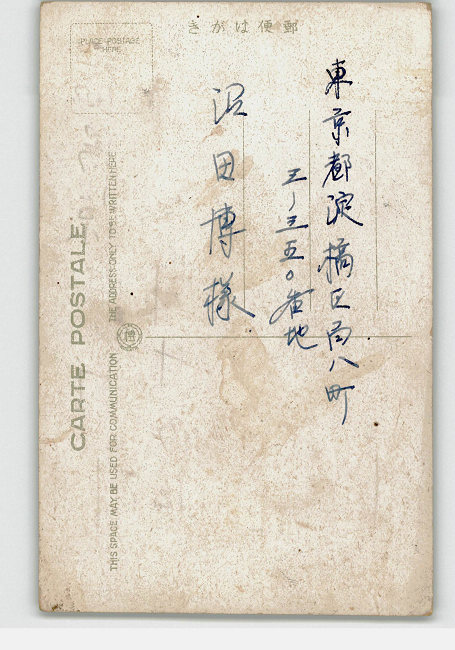 きがは便郵
PLACE POSTAGE
HERE
東京都淀橋区百人町
三ノ三五〇番地
沼田博様
CARTE POSTALE
THE ADDRESS ONLY TO BE WRITTEN HERE
THIS SPACE MAY BE USED FOR COMMUNICATION